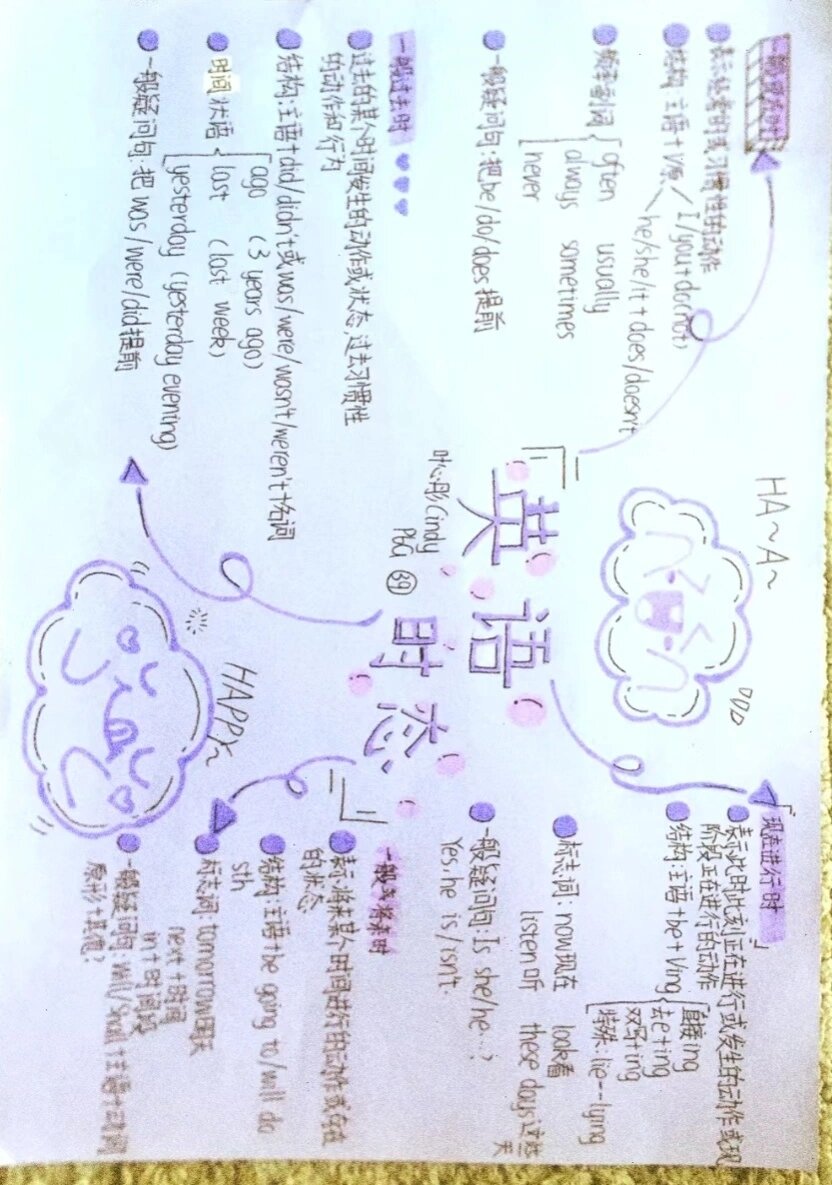 英语
时态
叶心彤Cindy
P6G ㊴
HA~A~
HAPPY~
一般现在时
表示经常的或习惯性的动作
结构:主语+V原
I/you+do(not)
he/she/it+does/doesn't
频率副词
often usually
always sometimes
never
一般疑问句:把be/do/does提前
一般过去时
过去的某个时间发生的动作或状态,过去习惯性
的动作和行为
结构:主语+did/didn't或was/were/wasn't/weren't+名词
时间状语
ago (3 years ago)
last (last week)
yesterday (yesterday evening)
一般疑问句:把was/were/did提前
「现在进行时」
表示此时此刻正在进行或发生的动作或现
阶段正在进行的动作
结构:主语+be+Ving
直接ing
去e+ing
双写+ing
特殊:lie--lying
标志词:now现在 look看
listen听 these days这些
天
一般疑问句:Is she/he…?
Yes,he is/isn't.
一般将来时
表示将来某个时间进行的动作或存在
的状态
结构:主语+be going to/will do
sth
标志词:tomorrow明天
next+时间
in+时间段
一般疑问句:Will/Shall+主语+动词
原形+其他?